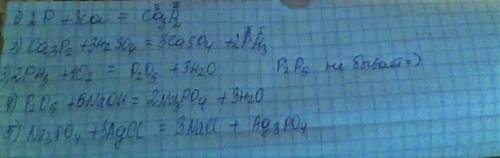 1) 2P + 3Ca = Ca3P2
2) Ca3P2 + 3H2SO4 = 3CaSO4 + 2PH3
3) 2PH3 + 4O2 = P2O5 + 3H2O P2P5 не бывает =)
4) P2O5 + 6NaOH = 2Na3PO4 + 3H2O
5) Na3PO4 + 3AgCl = 3NaCl + Ag3PO4